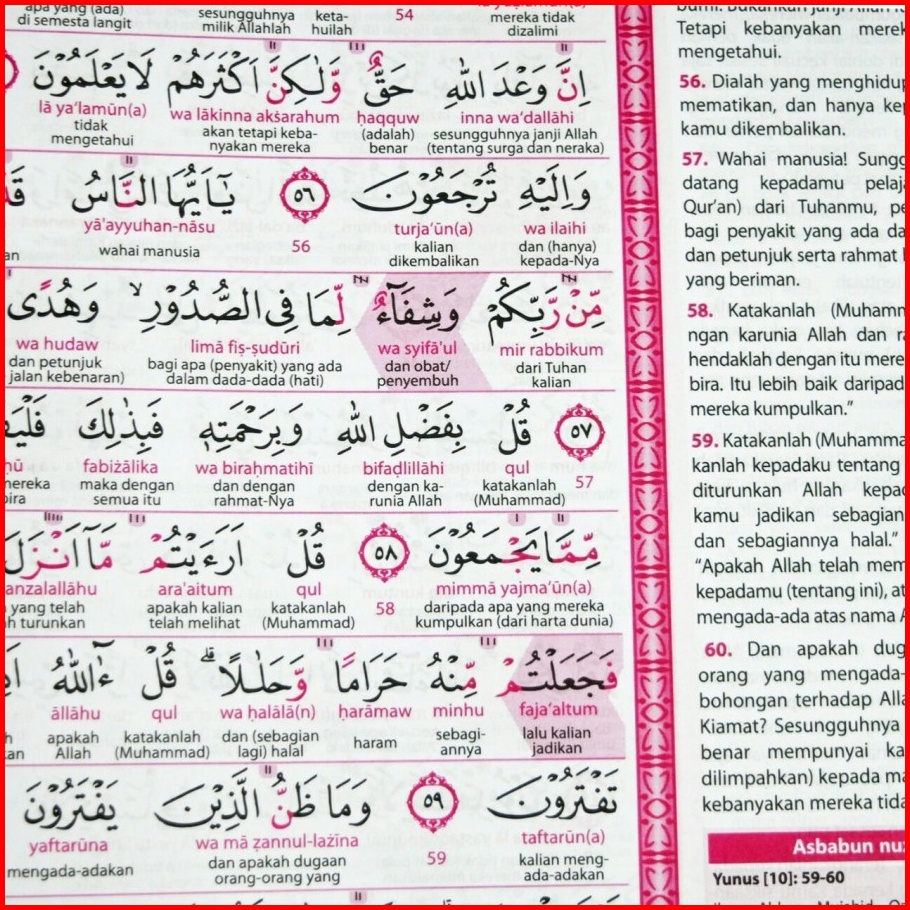 apa yang (ada)
di semesta langit
sesungguhnya
milik Allahlah
keta-
huilah
54
mereka tidak
dizalimi
اِنَّ وَعْدَ اللّٰهِ حَقٌّ وَّلٰكِنَّ اَكْثَرَهُمْ لَا يَعْلَمُوْنَ
inna wa‘dallāhi
ḥaqquw
wa lākinna akṡarahum
lā ya‘lamūn(a)
sesungguhnya janji Allah
(tentang surga dan neraka)
(adalah)
benar
akan tetapi keba-
nyakan mereka
tidak
mengetahui
وَاِلَيْهِ تُرْجَعُوْنَ ٥٦ يٰٓاَيُّهَا النَّاسُ قَدْ
wa ilaihi
turja‘ūn(a)
56
yā'ayyuhan-nāsu
dan (hanya)
kepada-Nya
kalian
dikembalikan
wahai manusia
مِّنْ رَّبِّكُمْ وَشِفَاۤءٌ لِّمَا فِى الصُّدُوْرِۙ وَهُدًى
mir rabbikum
wa syifā'ul
limā fiṣ-ṣudūri
wa hudaw
dari Tuhan
kalian
dan obat/
penyembuh
bagi apa (penyakit) yang ada
dalam dada-dada (hati)
dan petunjuk
jalan kebenaran)
٥٧ قُلْ بِفَضْلِ اللّٰهِ وَبِرَحْمَتِهٖ فَبِذٰلِكَ
57
qul
bifadlillāhi
wa biraḥmatihī
fabiżālika
katakanlah
(Muhammad)
dengan ka-
runia Allah
dan dengan
rahmat-Nya
maka dengan
semua itu
mereka
مِّمَّا يَجْمَعُوْنَ ٥٨ قُلْ اَرَءَيْتُمْ مَّآ اَنْزَلَ
mimmā yajma‘ūn(a)
58
qul
ara'aitum
anzalallāhu
daripada apa yang mereka
kumpulkan (dari harta dunia)
katakanlah
(Muhammad)
apakah kalian
telah melihat
yang telah
turunkan
فَجَعَلْتُمْ مِّنْهُ حَرَامًا وَّحَلٰلًاۗ قُلْ ءٰۤاللّٰهُ
faja‘altum
minhu
ḥarāmaw
wa ḥalālā(n)
qul
āllāhu
lalu kalian
jadikan
sebagi-
annya
haram
dan (sebagian
lagi) halal
katakanlah
(Muhammad)
apakah
Allah
تَفْتَرُوْنَ ٥٩ وَمَا ظَنُّ الَّذِيْنَ يَفْتَرُوْنَ
taftarūn(a)
59
wa mā ẓannul-lażīna
yaftarūna
kalian meng-
ada-adakan
dan apakah dugaan
orang-orang yang
mengada-adakan
Tetapi kebanyakan merek
mengetahui.
56. Dialah yang menghidup
mematikan, dan hanya kep
kamu dikembalikan.
57. Wahai manusia! Sungg
datang kepadamu pelaja
Qur’an) dari Tuhanmu, pe
bagi penyakit yang ada da
dan petunjuk serta rahmat
yang beriman.
58. Katakanlah (Muhamm
ngan karunia Allah dan ra
hendaklah dengan itu mere
bira. Itu lebih baik daripad
mereka kumpulkan.”
59. Katakanlah (Muhamma
kanlah kepadaku tentang
diturunkan Allah kepad
kamu jadikan sebagian
dan sebagiannya halal.”
“Apakah Allah telah mem
kepadamu (tentang ini), at
mengada-ada atas nama A
60. Dan apakah dug
orang yang mengada-
bohongan terhadap Alla
Kiamat? Sesungguhnya
benar mempunyai ka
dilimpahkan) kepada ma
kebanyakan mereka tida
Asbabun nuz
Yunus [10]: 59-60